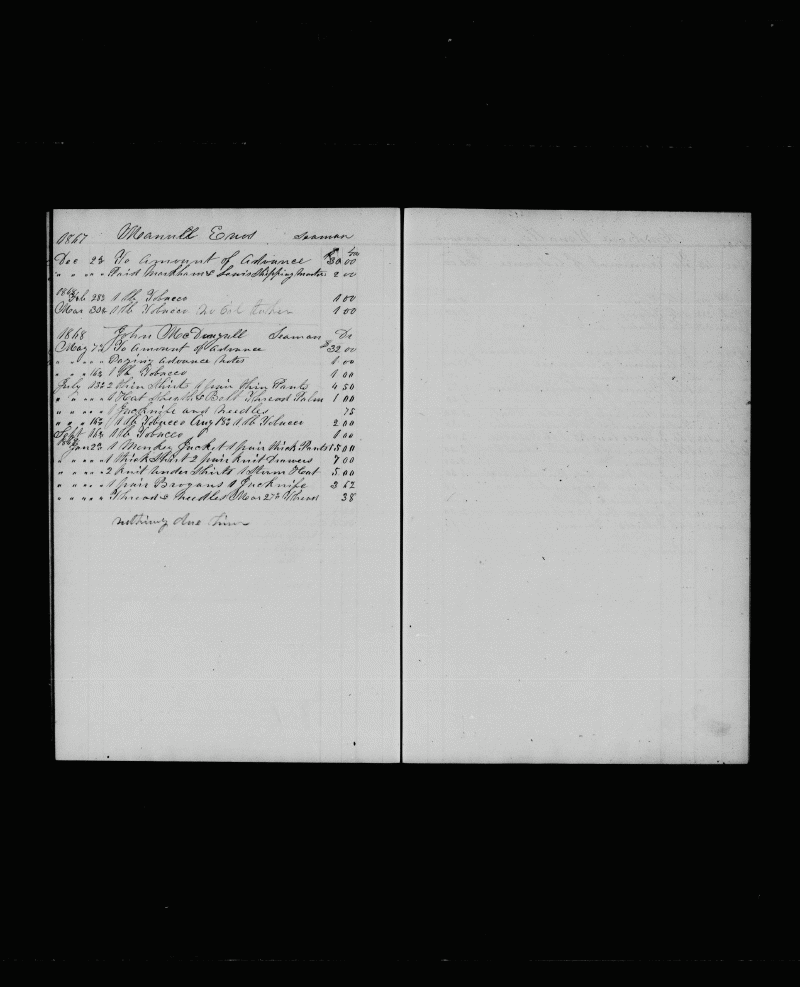 1867 Manuell Enos Seaman
Dec 23 To Amount of Advance $30 00
" " " " Paid Markham & Lewis Shipping Master 2 00
1868 Feb 28 1 lb Tobacco 1 00
Mar 30 1 lb Tobacco no Oil taken 1 00
1868 John McDougall Seaman Dr
May 7 To Amount of Advance $32 00
" " " " Paying Advance Notes 1 00
" " 16 1 lb Tobacco 1 00
July 13 2 thin Shirts 1 pair thin Pants 4 50
" " " " 1 Hat Sheath & Belt Thread Palm 1 00
" " " " 1 Jacknife and Needles 75
" " " 18 1 lb Tobacco Aug 18 1 lb Tobacco 2 00
Sept 16 1 lb Tobacco 1 00
Jan 22 1 Monkey Jacket 1 pair thick Pants 15 00
" " " " 1 thick Shirt 2 pair Knit Drawers 7 00
" " " " 2 Knit Under Shirts 1 Hat 5 00
" " " " 1 pair Brogans 1 Jacknife 2 62
" " " " Thread & Needles Mar 27 Thread 38
nothing due him